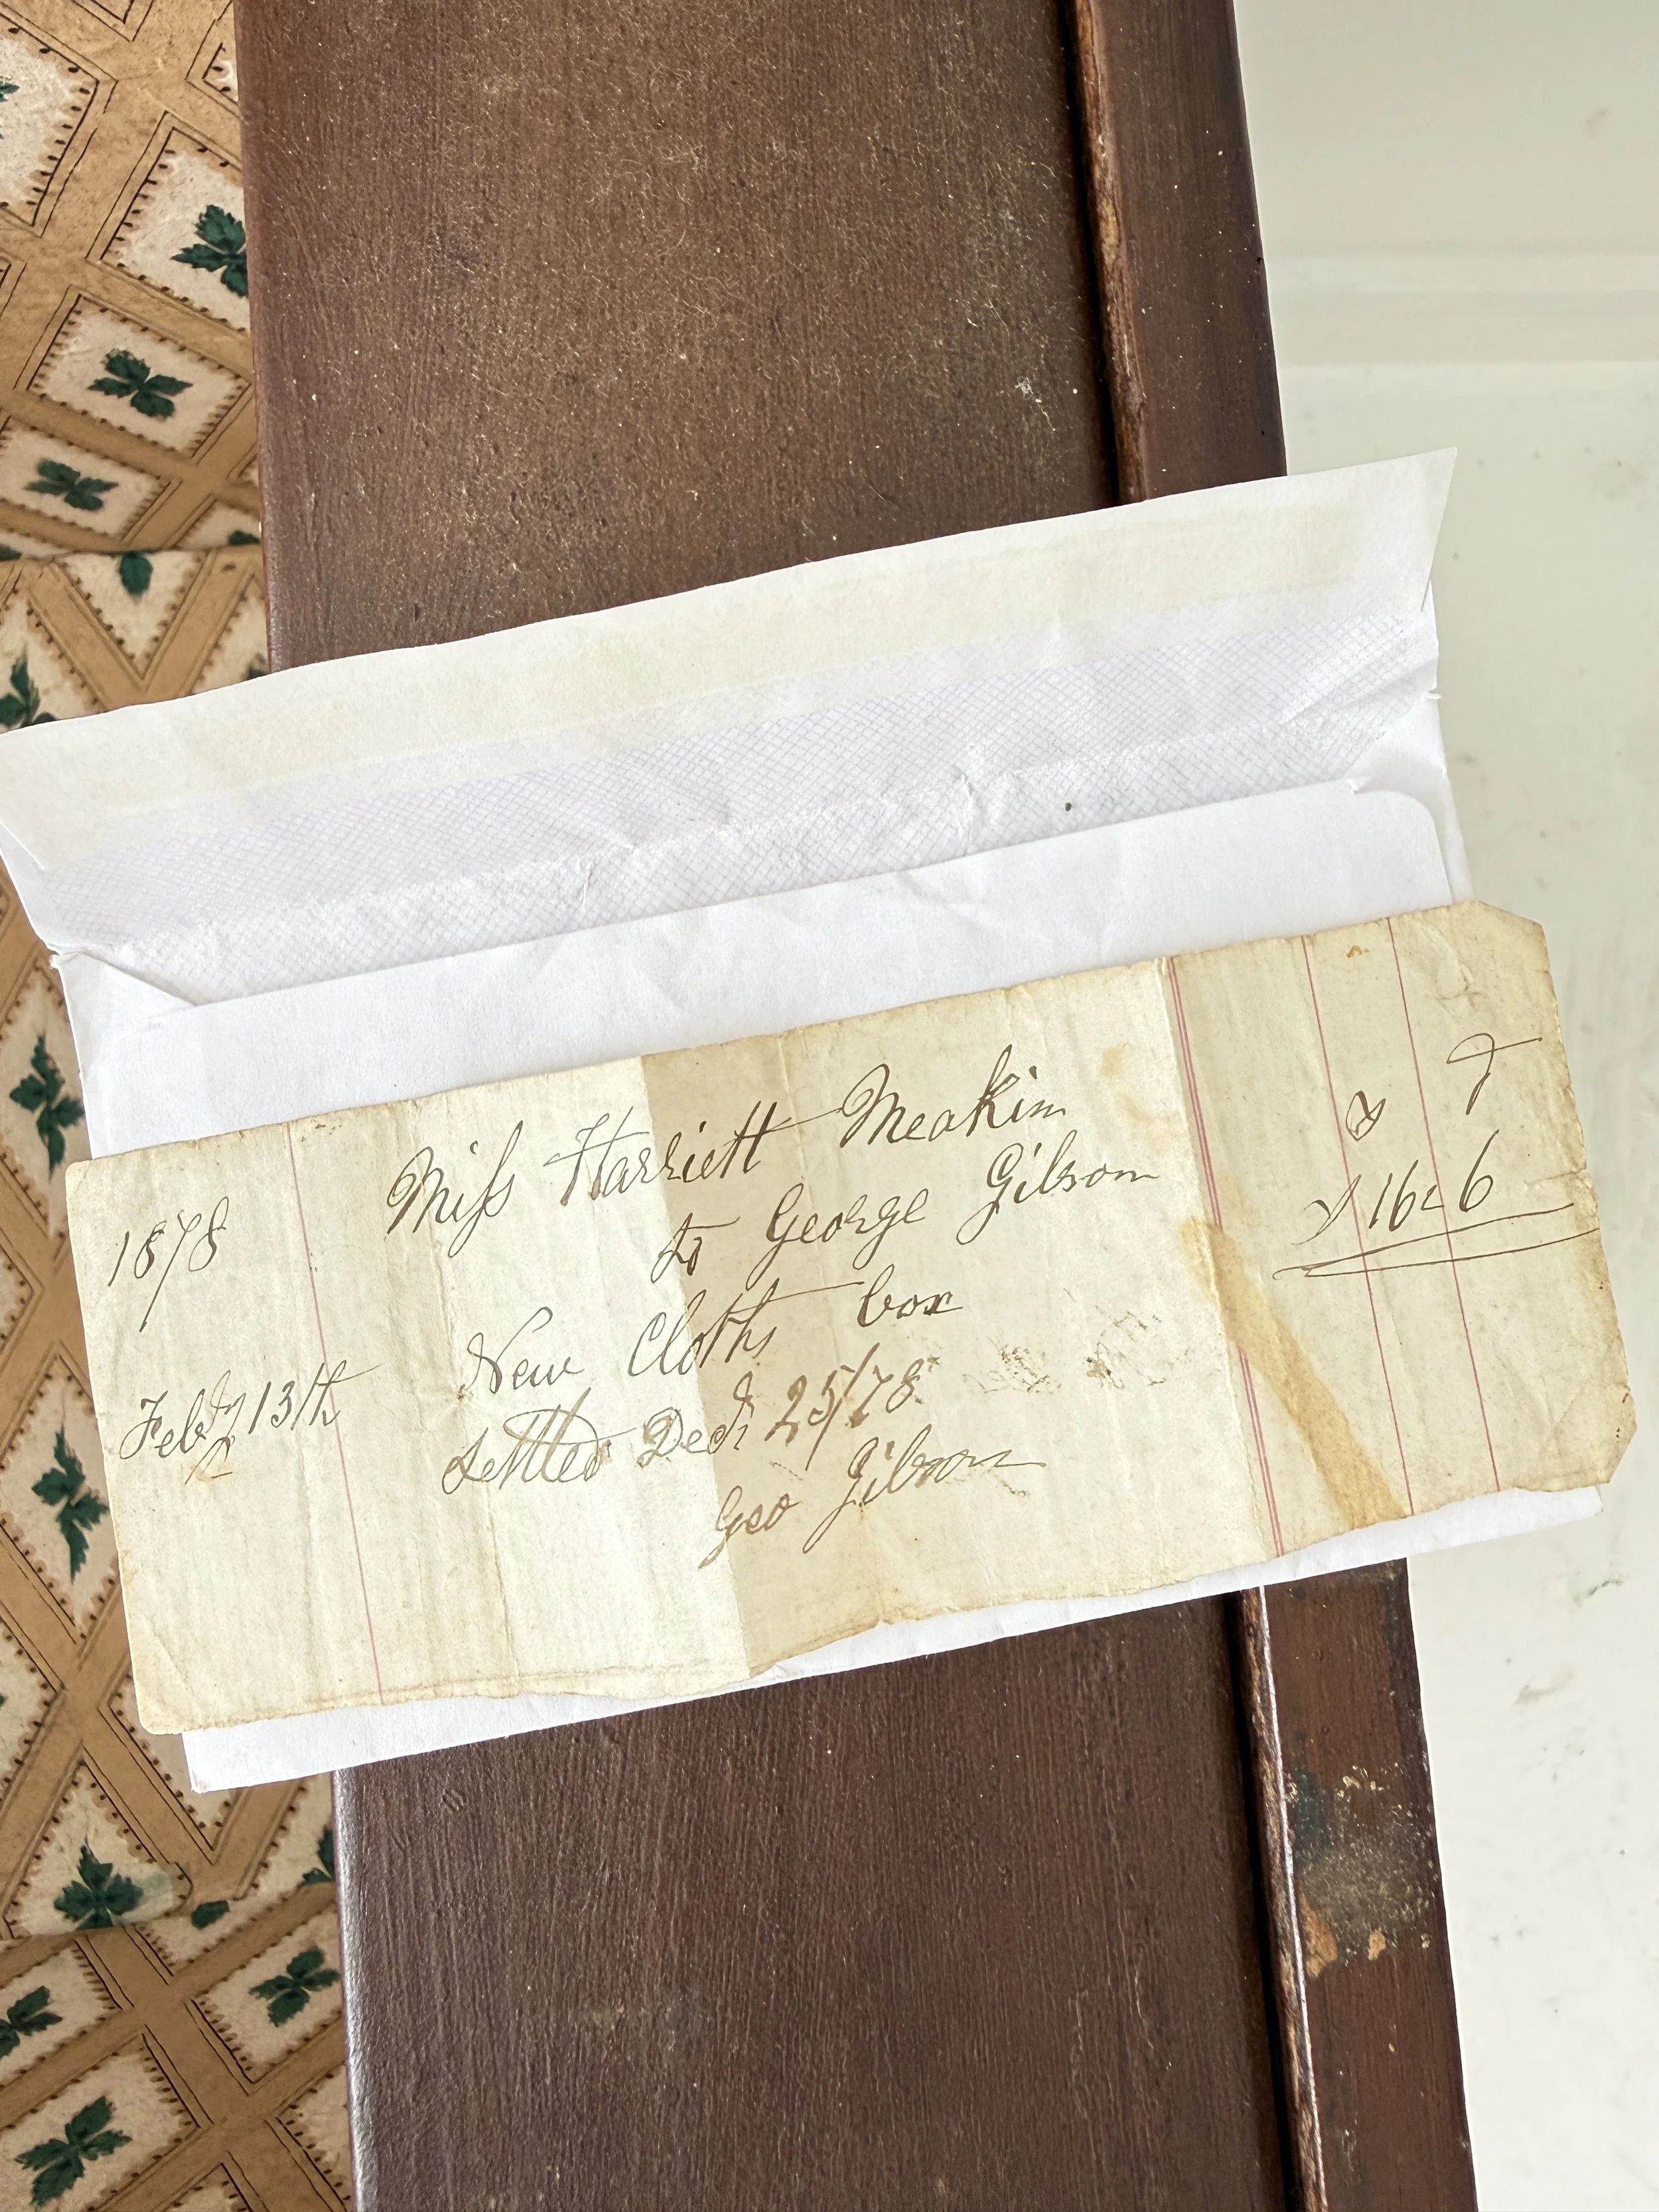 1878 Miss Harriett Meakin
to George Gibson
New Cloths box
Feby 13th
settled Decr 25/78
Geo Gibson
16 6